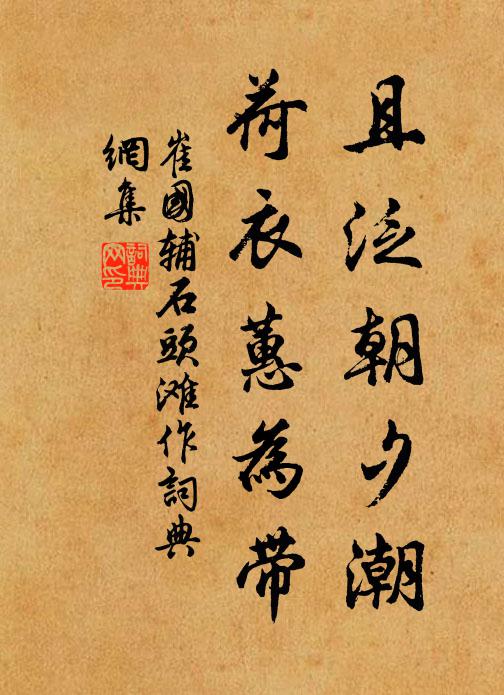 且泛朝夕潮
荷衣蕙為帶
崔國輔石頭滩作詞典
網集
詞典
网印